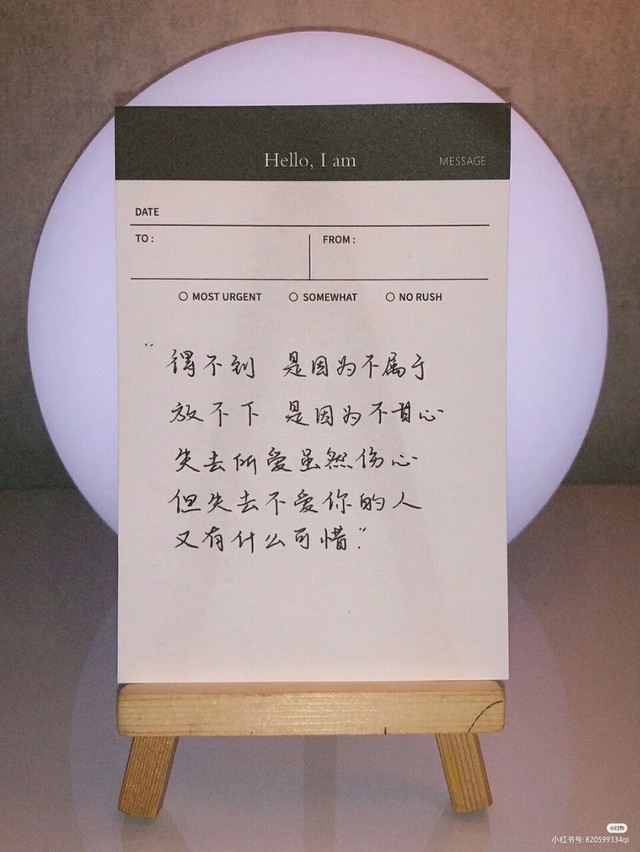 Hello, I am
MESSAGE
DATE
TO :
FROM :
MOST URGENT
SOMEWHAT
NO RUSH
“得不到 是因为不属于
放不下 是因为不甘心
失去所爱虽然伤心
但失去不爱你的人
又有什么可惜”
小红书
小红书号: 820599334qi